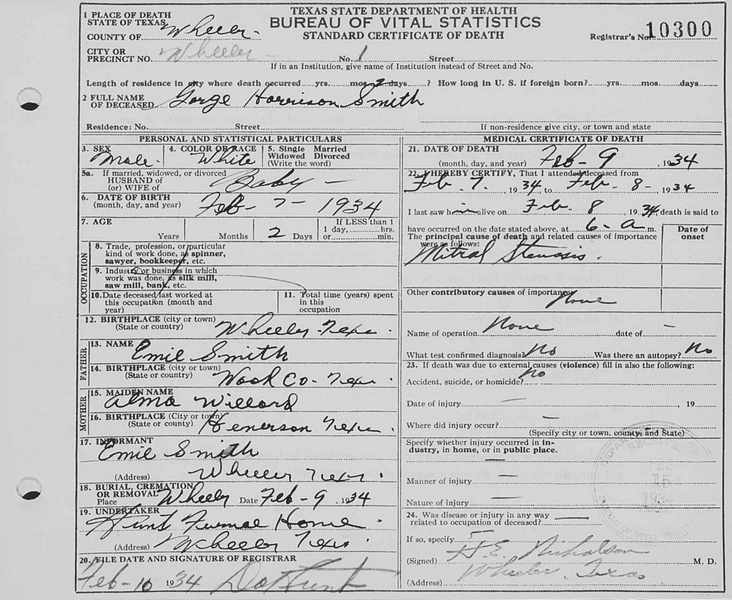 TEXAS STATE DEPARTMENT OF HEALTH
BUREAU OF VITAL STATISTICS
STANDARD CERTIFICATE OF DEATH
Registrar's No. 10300
1 PLACE OF DEATH
STATE OF TEXAS,
COUNTY OF Wheeler
CITY OR
PRECINCT NO. Wheeler No. 1 Street
If in an Institution, give name of Institution instead of Street and No.
Length of residence in city where death occurred yrs. mos. 2 days? How long in U. S. if foreign born? yrs. mos. days
2 FULL NAME
OF DECEASED Gorge Harrison Smith
Residence: No. Street If non-residence give city, or town and state
PERSONAL AND STATISTICAL PARTICULARS
3. SEX Male
4. COLOR OR RACE White
5. Single Married
Widowed Divorced
(Write the word)
5a. If married, widowed, or divorced
HUSBAND OF
(or) WIFE of Baby
6. DATE OF BIRTH
(month, day, and year) Feb - 7 - 1934
7. AGE
Years Months 2 Days
If LESS than
1 day, hrs.
or min.
OCCUPATION
8. Trade, profession, or particular
kind of work done, as spinner,
sawyer, bookkeeper, etc.
9. Industry or business in which
work was done, as silk mill,
saw mill, bank, etc.
10. Date deceased last worked at
this occupation (month and
year)
11. Total time (years) spent
in this
occupation
12. BIRTHPLACE (city or town)
(State or country) Wheeler Texas
FATHER
13. NAME
Emil Smith
14. BIRTHPLACE (city or town)
(State or country) Wook Co - Texas
MOTHER
15. MAIDEN NAME
Alma Willard
16. BIRTHPLACE (City or town)
(State or country) Henerson Texas
17. INFORMANT
Emil Smith
(Address) Wheeler Texas
18. BURIAL, CREMATION
OR REMOVAL
Place Wheeler Date Feb - 9 1934
19. UNDERTAKER
Hunt Funeral Home
(Address) Wheeler Texas
20. FILE DATE AND SIGNATURE OF REGISTRAR
Feb - 10 1934 Hunt
MEDICAL CERTIFICATE OF DEATH
21. DATE OF DEATH
(month, day, and year) Feb - 9, 1934
22. I HEREBY CERTIFY, That I attended deceased from
Feb. 7. 1934 to Feb. 8 - 1934
I last saw him alive on Feb. 8 1934, death is said to
have occurred on the date stated above, at 6 - a m.
The principal cause of death and related causes of importance
were as follows:
Date of
onset
Mitral Stenosis.
Other contributory causes of importance:
None
Name of operation None date of —
What test confirmed diagnosis? No Was there an autopsy? No
23. If death was due to external causes (violence) fill in also the following:
Accident, suicide, or homicide? No
Date of injury — , 19
Where did injury occur? —
(Specify city or town, county, and State)
Specify whether injury occurred in in-
dustry, in home, or in public place.
—
Manner of injury —
Nature of injury —
24. Was disease or injury in any way
related to occupation of deceased? —
If so, specify —
(Signed) H. E. Nicholson M. D.
(Address) Wheeler, Texas